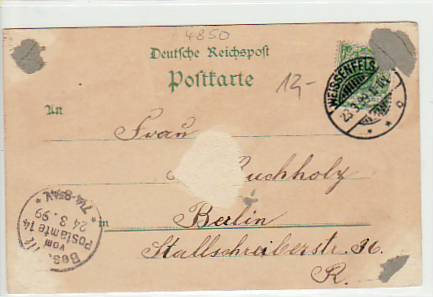 4850
Deutsche Reichspost
Postkarte
12,-
An
WEISSENFELS
23.3.99
c
Frau
Buchholz
Berlin
Stallschreiberstr.
R.
Bes.
vom
Postamte 14
24.3.99
7¼-8¼V.